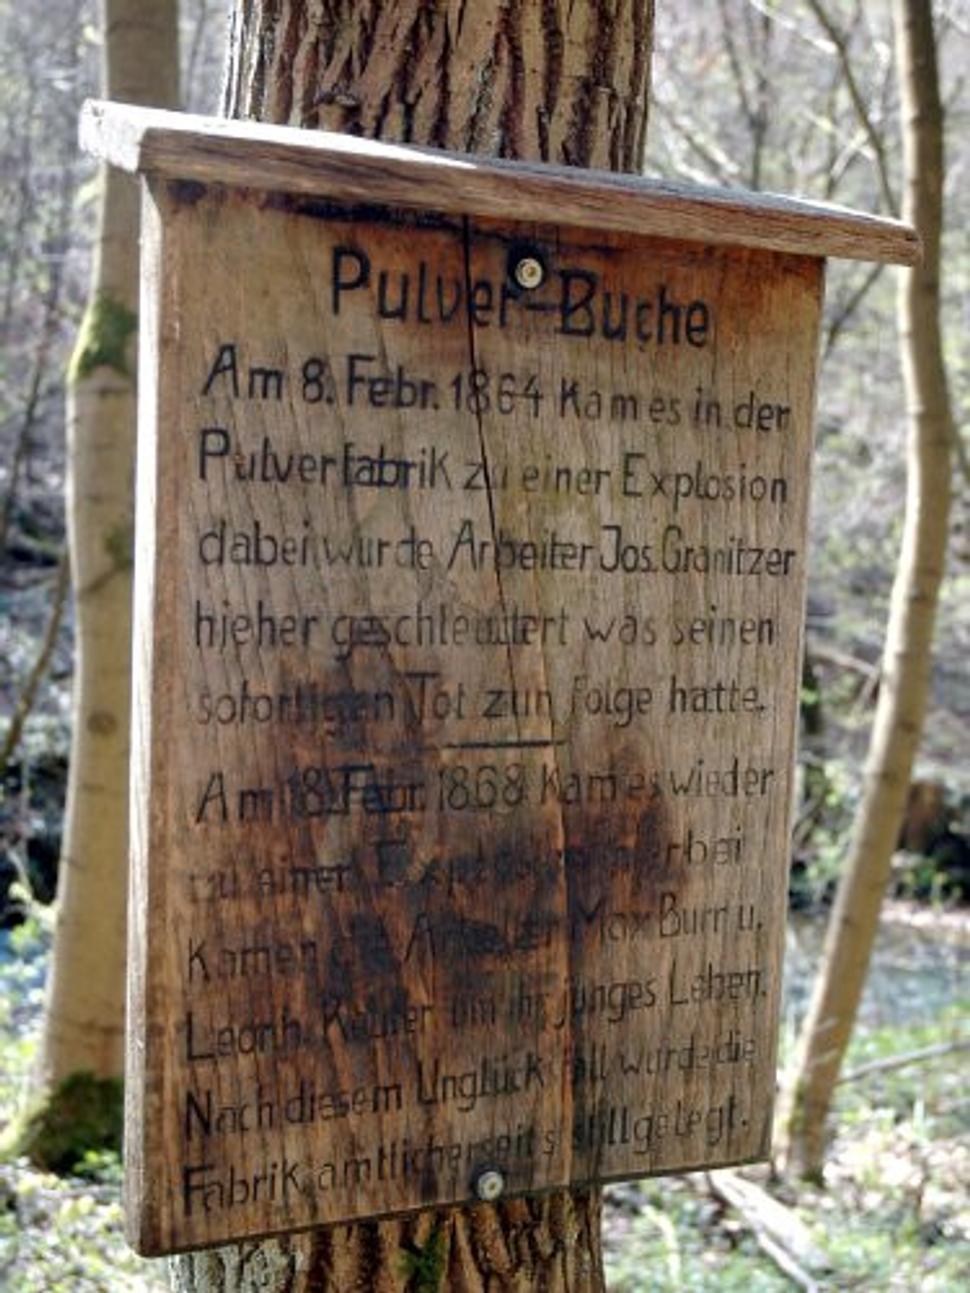 Pulver-Buche
Am 8. Febr. 1864 Kam es in der
Pulverfabrik zu einer Explosion
dabei wurde Arbeiter Jos. Granitzer
hieher geschleudert was seinen
sofortigen Tot zun folge hatte.
Am 18. Febr. 1868 Kam es wieder
zu einer Explosion hierbei
Kamen die Arbeiter Max Burr u.
Leonh. um ihr junges Leben.
Nach diesem Unglückfall wurde die
Fabrik amtlicherseits stillgelegt.